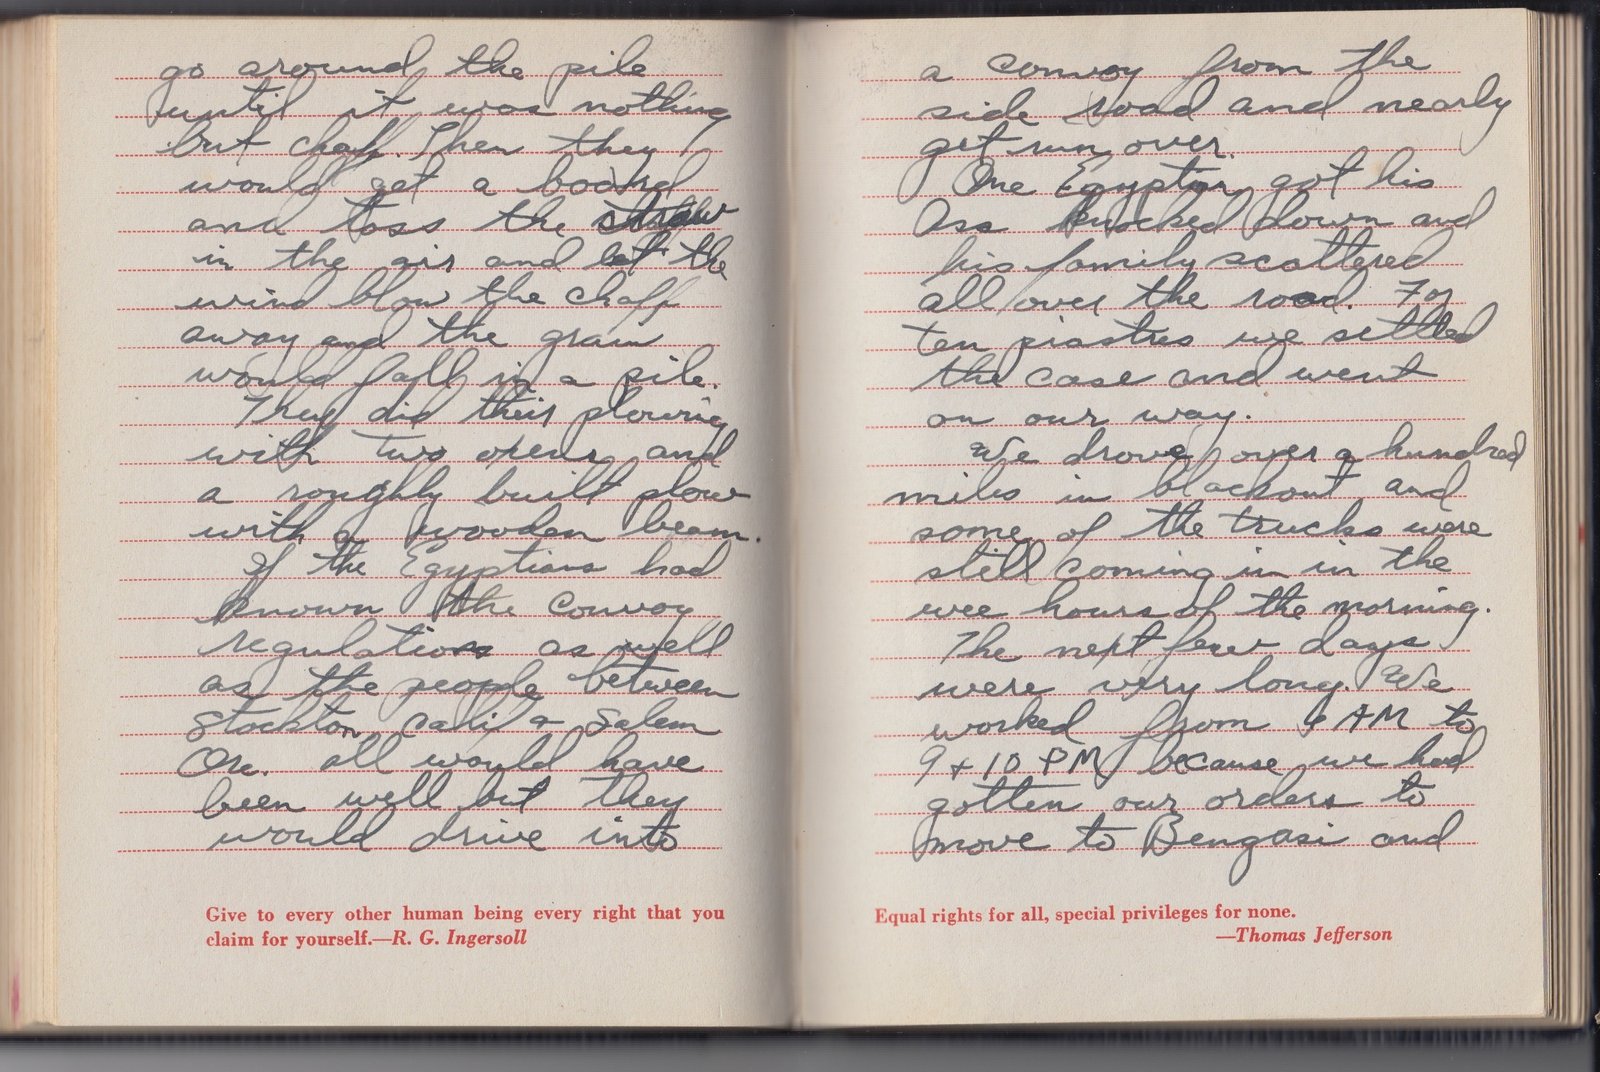 go around the pile
until it was nothing
but chaff. Then they
would get a board
and toss the straw
in the air and let the
wind blow the chaff
away and the grain
would fall in a pile.
They did their plowing
with two oxens and
a roughly built plow
with a wooden beam.
If the Egyptians had
known the convoy
regulations as well
as the people between
Stockton Cali & Salem
Ore. all would have
been well but they
would drive into
Give to every other human being every right that you
claim for yourself.—R. G. Ingersoll
a convoy from the
side road and nearly
get run over.
One Egyptian got his
Ass knocked down and
his family scattered
all over the road. For
ten piastres we settled
the case and went
on our way.
We drove over a hundred
miles in blackout and
some of the trucks were
still coming in in the
wee hours of the morning.
The next few days
were very long. We
worked from 6 AM to
9 + 10 PM because we had
gotten our orders to
move to Bengasi and
Equal rights for all, special privileges for none.
—Thomas Jefferson